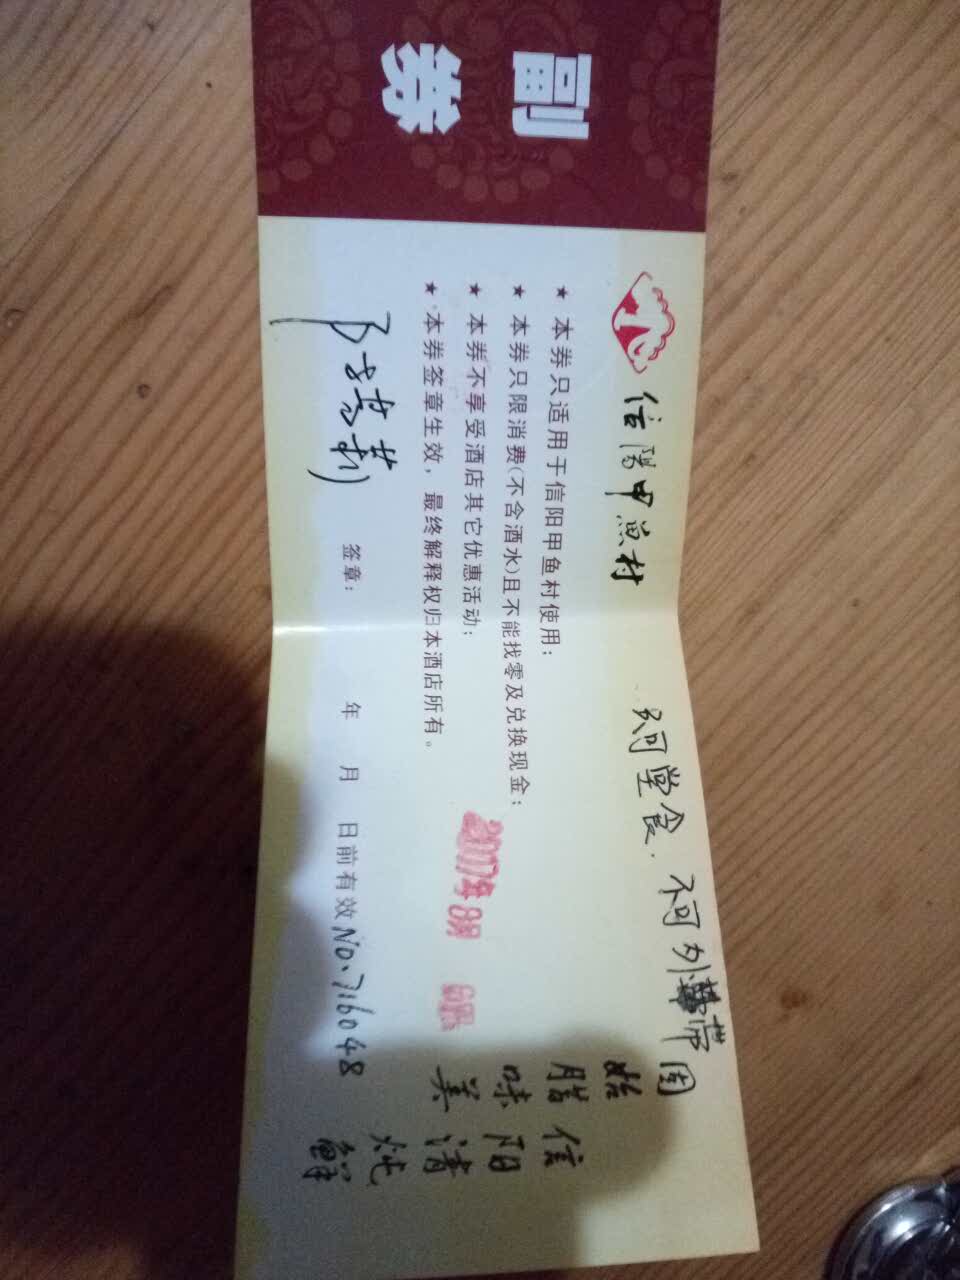 副券
信阳甲鱼村
只可堂食.不可外带
★ 本券只适用于信阳甲鱼村使用;
★ 本券只限消费(不含酒水)且不能找零及兑换现金;
★ 本券不享受酒店其它优惠活动;
★ 本券签章生效，最终解释权归本酒店所有。
签章:
年 月 日前有效
NO.716048
固始
腊味美
信阳清炖鲜